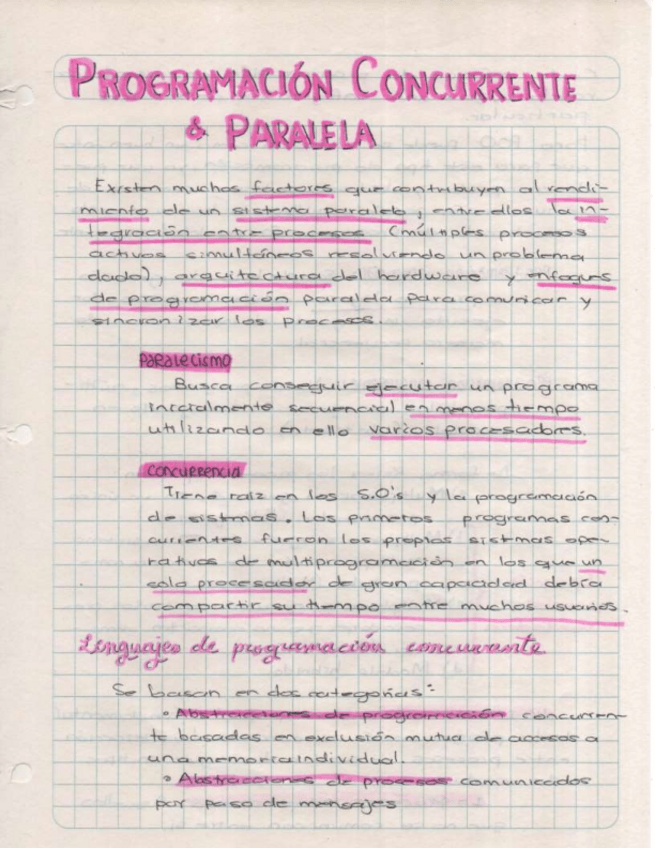 PROGRAMACIÓN CONCURRENTE
& PARALELA
Existen muchos factores que contribuyen al rendi-
miento de un sistema paralelo, entre ellos la in-
tegración entre procesos (múltiples procesos
activos simultáneos resolviendo un problema
dado), arquitectura del hardware y enfoques
de programación paralela para comunicar y
sincronizar los procesos.
PARALELISMO
Busca conseguir ejecutar un programa
inicialmente secuencial en menos tiempo
utilizando en ello varios procesadores.
CONCURRENCIA
Tiene raiz en los S.O's y la programación
de sistemas. Los primeros programas con-
currentes fueron los propios sistemas ope-
rativos de multiprogramación en los que un
solo procesador de gran capacidad debía
compartir su tiempo entre muchos usuarios.
Lenguajes de programación concurrente
Se basan en dos categorias:
• Abstracciones de programación concurren-
te basadas en exclusión mutua de accesos a
una memoria individual.
• Abstracciones de procesos comunicados
por paso de mensajes